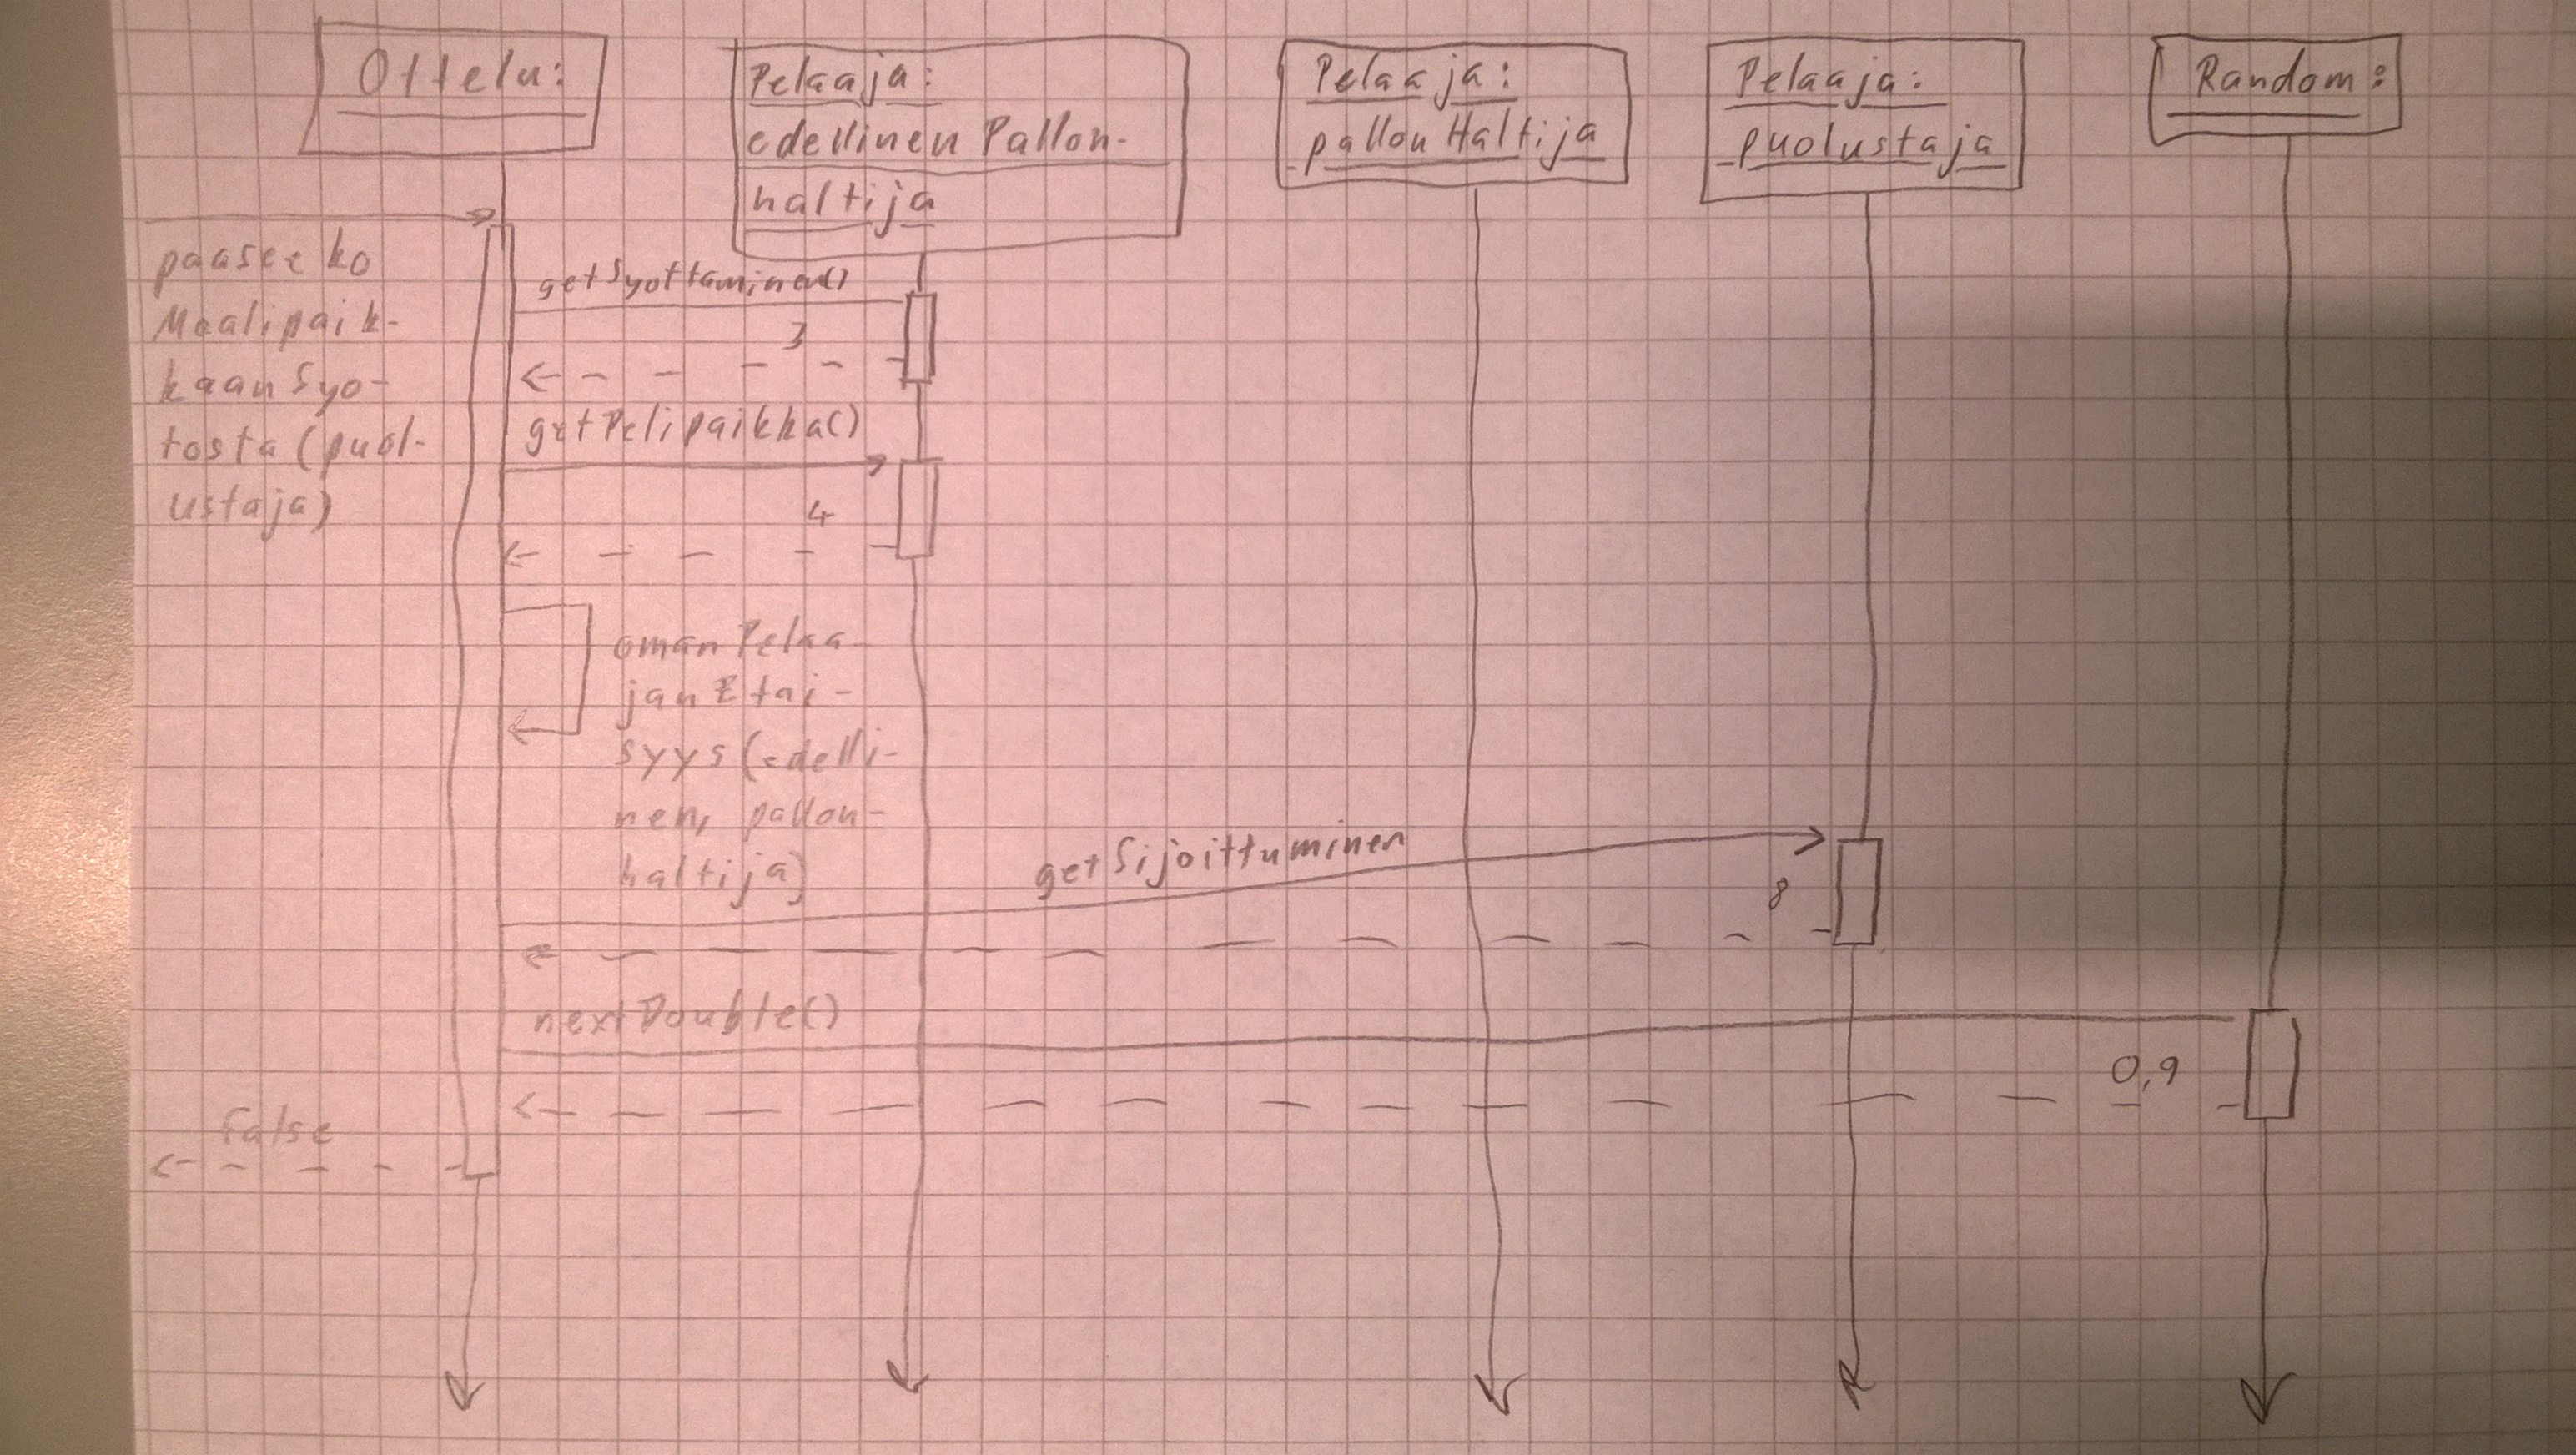 Ottelu:
Pelaaja:
edellinen Pallon-
haltija
Pelaaja:
pallonHaltija
Pelaaja:
puolustaja
Random:
paaseeko
Maalipaik-
kaanSyo-
tosta (puol-
ustaja)
getSyottaminen()
3
getPelipaikka()
4
omanPelaa-
janEtai-
syys(edelli-
nen, pallon-
haltija)
getSijoittuminen
8
nextDouble()
0,9
false